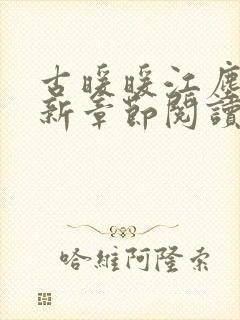 古暖暖江塵
新章節閱讀
哈維阿隆索